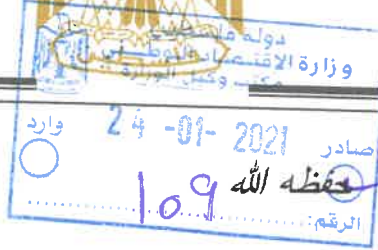 دولة فلسطين
وزارة الاقتصاد الوطني
مكتب وكيل الوزارة
صادر 24 -01- 2021 وارد
حفظه الله
الرقم: 109